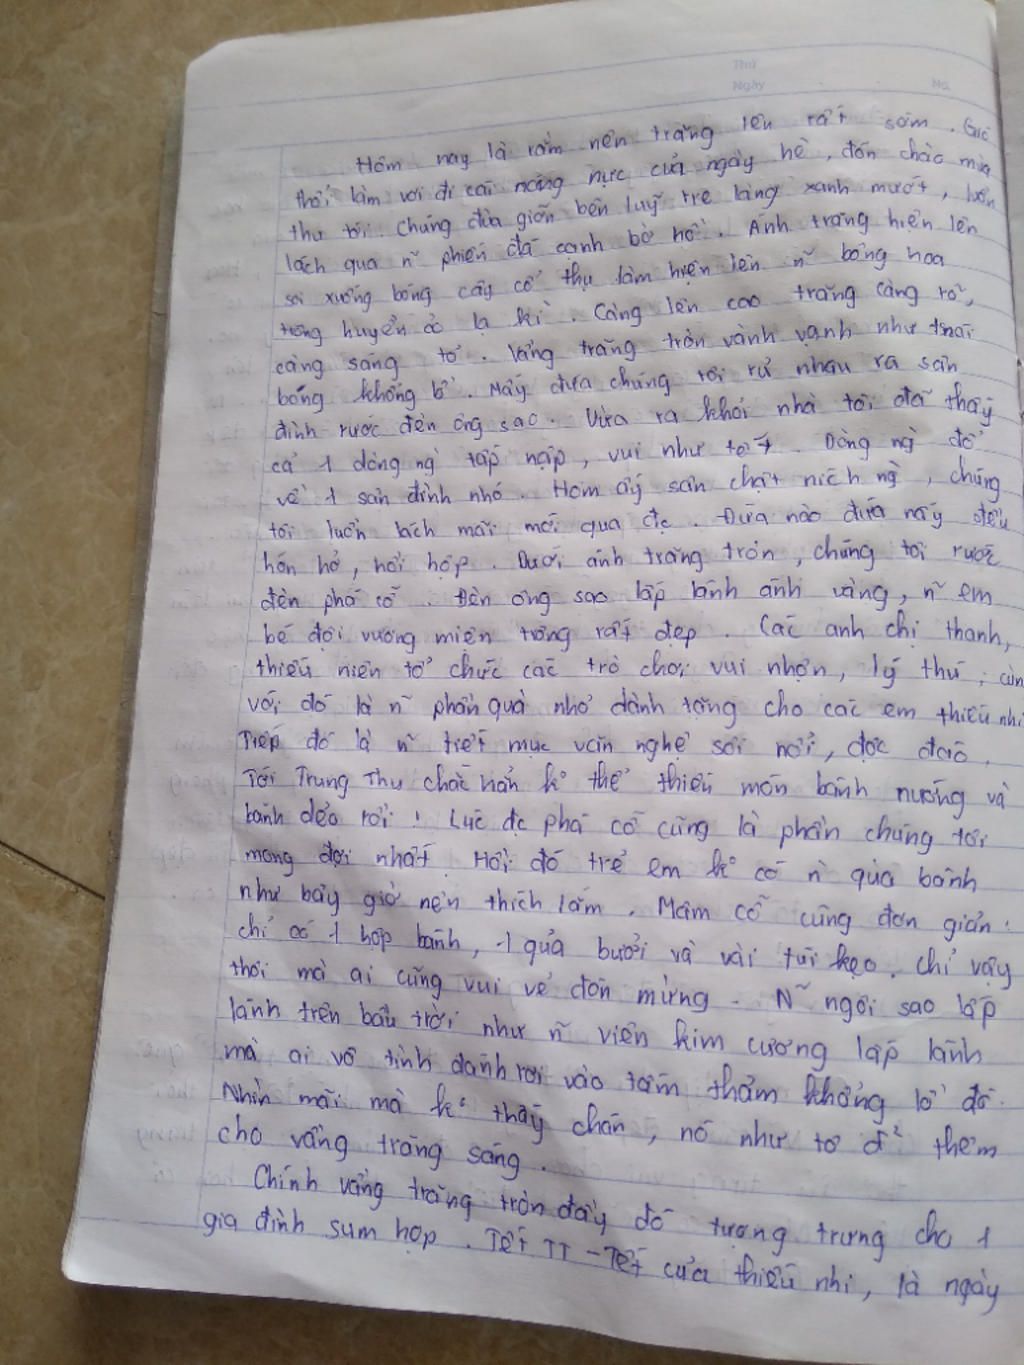 Thứ
Ngày No.
Hôm nay là rằm nên trăng lên rất sớm. Gió
thổi làm vơi đi cái nóng nực của ngày hè, đón chào mùa
thu tới. Chúng đùa giỡn bên luỹ tre làng xanh mướt, luồn
lách qua ~ phiến đá cạnh bờ hồ. Ánh trăng hiện lên
soi xuống bóng cây cổ thụ làm hiện lên ~ bông hoa
trông huyền ảo lạ kì. Càng lên cao trăng càng rõ,
càng sáng tỏ. Vầng trăng tròn vành vạnh như trái
bóng khổng lồ. Mấy đứa chúng tôi rủ nhau ra sân
đình rước đèn ông sao. Vừa ra khỏi nhà tôi đã thấy
cả 1 dòng ng` tấp nập, vui như tết. Dòng ng` đổ
về 1 sân đình nhỏ. Hôm ấy sân chật ních ng`, chúng
tôi luồn lách mãi mới qua đc. Đứa nào đứa nấy đều
hớn hở, hồi hộp. Dưới ánh trăng tròn, chúng tôi rước
đèn phá cỗ. Đèn ông sao lấp lánh ánh vàng, ~ em
bé đội vương miện trông rất đẹp. Các anh chị thanh,
thiếu niên tổ chức các trò chơi vui nhộn, lý thú, cùng
với đó là ~ phần quà nhỏ dành tặng cho các em thiếu nhi
Tiếp đó là ~ tiết mục văn nghệ sôi nổi, độc đáo.
Tới Trung Thu chắc hẳn k° thể thiếu món bánh nướng và
bánh dẻo rồi! Lúc đc phá cỗ cũng là phần chúng tôi
mong đợi nhất. Hồi đó trẻ em k° có n` quà bánh
như bây giờ nên thích lắm. Mâm cỗ cũng đơn giản:
chỉ có 1 hộp bánh, 1 quả bưởi và vài túi kẹo. Chỉ vậy
thôi mà ai cũng vui vẻ đón mừng. N~ ngôi sao lấp
lánh trên bầu trời như ~ viên kim cương lấp lánh
mà ai vô tình đánh rơi vào tấm thảm khổng lồ đó.
Nhìn mãi mà k° thấy chán, nó như tô đ² thêm
cho vầng trăng sáng.
Chính vầng trăng tròn đầy đó tượng trưng cho 1
gia đình sum họp. Tết TT - Tết của thiếu nhi, là ngày